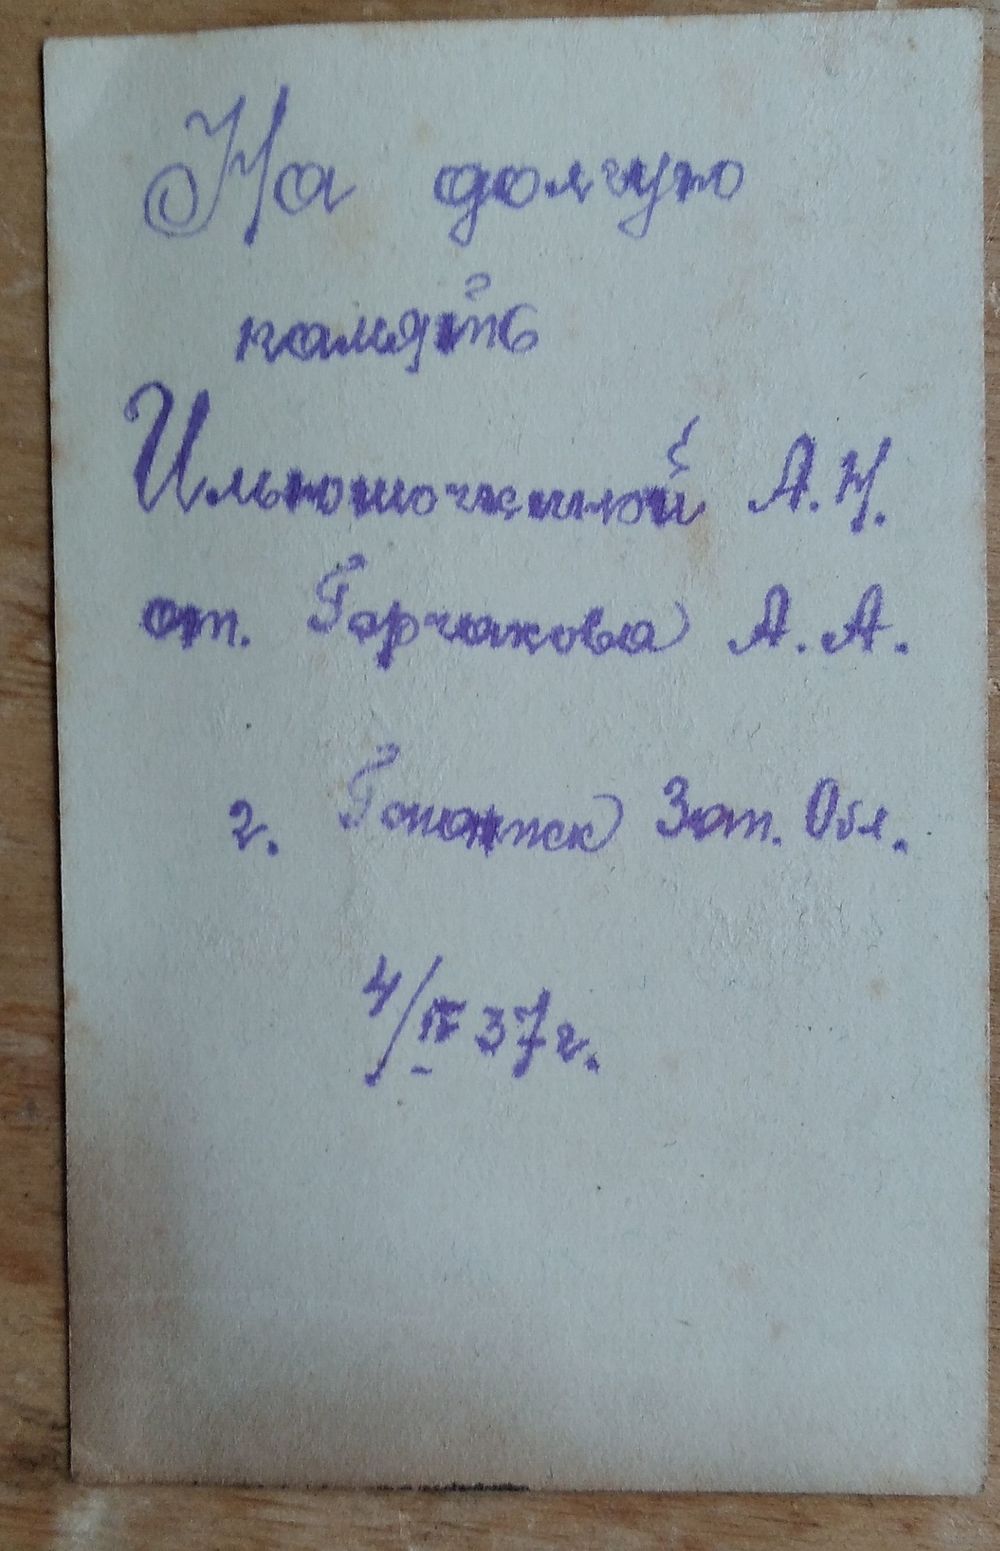 На долгую
память
Ильюшочкиной А.Н.
от. Горчакова А.А.
г. Зап. Обл.
4/IV 37 г.